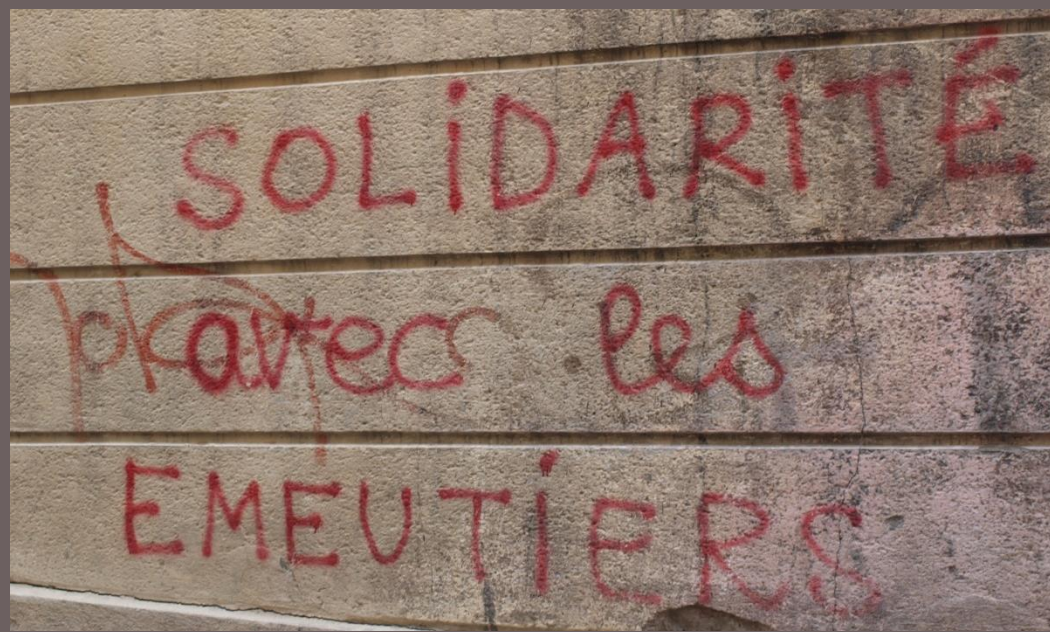 SOLiDARiTÉ
avec les
EMEUTİERS